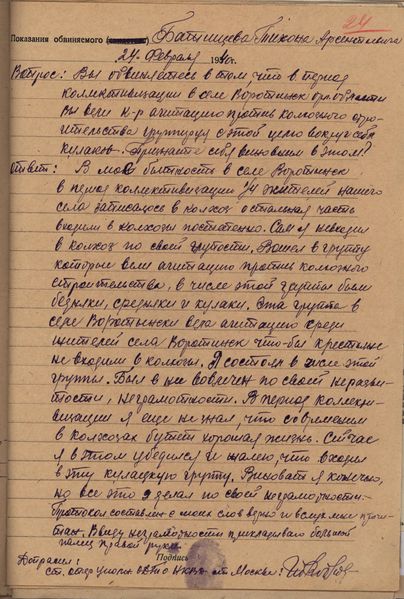 24
Показания обвиняемого (свидетеля) Батищева Тихона Арсентьевича
24 февраля 194 г.
Вопрос: Вы обвиняетесь в том что в период
коллективизации в селе Воротынск области
вы вели к-р агитацию против колхозного стро-
ительства группируя с этой целью вокруг себя
кулаков. Признаете себя виновным в этом?
Ответ: В мою бытность в селе Воротынск
в период коллективизации жителей нашего
села записалось в колхоз остальная часть
входили в колхозы постепенно. Сам я не входил
в колхоз по своей глупости. Вошел в группу
которые вели агитацию против колхозного
строительства, в числе этой группы были
бедняки, средняки и кулаки. Эта группа в
селе Воротынски вела агитацию среди
жителей села Воротынск что-бы крестьяне
не входили в колхозы. Я состоял в числе этой
группы. Был в нее вовлечен по своей неразви-
тости, неграмотности. В период коллекти-
визации я еще не знал, что со временем
в колхозах будет хорошая жизнь. Сейчас
я в этом убедился и жалею, что входил
в эту кулацкую группу. Виноват я конечно,
но все это я делал по своей неграмотности.-
Протокол составлен с моих слов верно и вслух мне прочи-
тан. Ввиду неграмотности прикладываю большой
палец правой руки.
Подпись
Допросил:
ст. опер Уполн. НКВД Москвы: